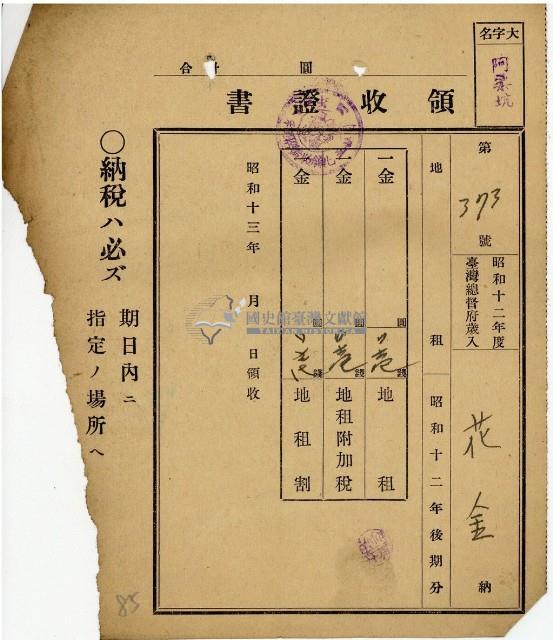 大字名
阿柔坑
合計 圓
領收證書
第 373 號
昭和十二年度
臺灣總督府歲入
花金 納
地租 昭和十二年後期分
一金 圓 〃壱錢 地租
一金 圓 〃壱錢 地租附加稅
一金 圓 〃壱錢 地租割
昭和十三年 月 日領收
○納稅ハ必ズ
期日內ニ
指定ノ場所ヘ
國史館臺灣文獻館
TAIWAN HISTORICA
85